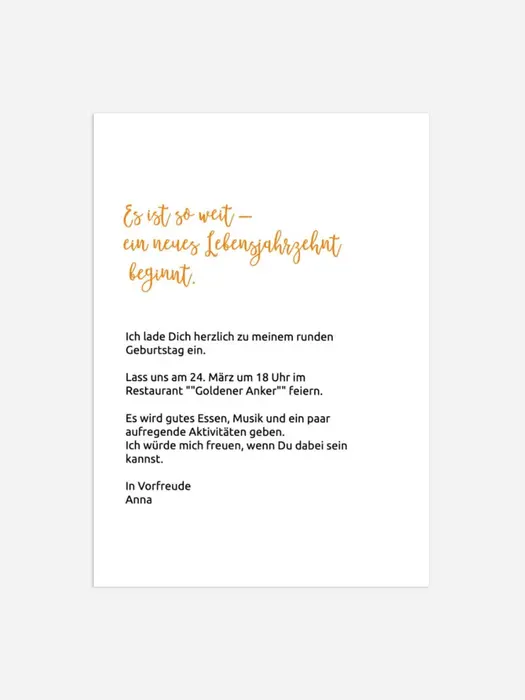 Es ist so weit –
ein neues Lebensjahrzehnt
beginnt.
Ich lade Dich herzlich zu meinem runden
Geburtstag ein.
Lass uns am 24. März um 18 Uhr im
Restaurant ""Goldener Anker"" feiern.
Es wird gutes Essen, Musik und ein paar
aufregende Aktivitäten geben.
Ich würde mich freuen, wenn Du dabei sein
kannst.
In Vorfreude
Anna